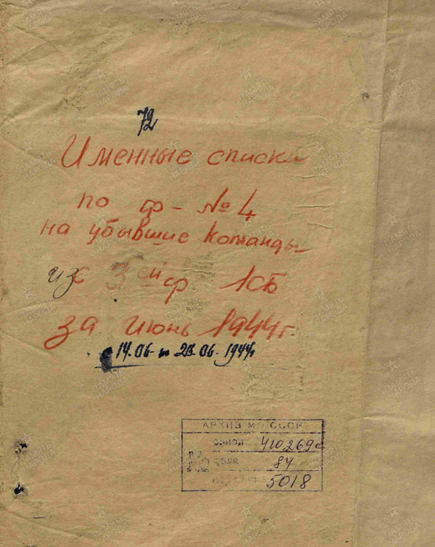 72
Именные списки
по ф- №4
на убывшие команды
из 3ей ф. 1сб
за июнь 1944г
с 14.06 по 20.06.1944г
АРХИВ М СССР
4102696
84
5018